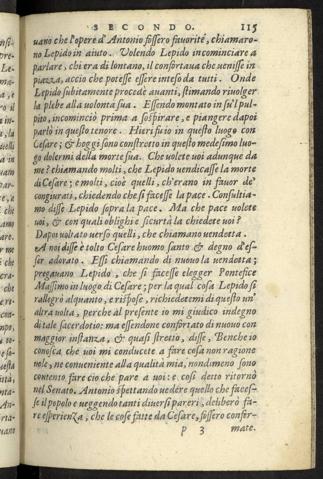 SECONDO. 115
uano che l'opere d'Antonio fossero fauorite, chiamaro-
no Lepido in aiuto. Volendo Lepido incominciare a
parlare, chi era di lontano, il confortaua che uenisse in
piazza, accio che potesse essere inteso da tutti. Onde
Lepido subitamente procede auanti, stimando riuolger
la plebe alla uolontà sua. Essendo montato in su'l pul-
pito, incominciò prima a sospirare, e piangere dapoi
parlò in questo tenore. Hieri fu io in questo luogo con
Cesare; & hoggi sono constretto in questo medesimo luo-
go dolermi della morte sua. Che uolete uoi adunque da
me? chiamando molti, che Lepido uendicasse la morte
di Cesare; e molti, cioè quelli, ch'erano in fauor de'
congiurati, chiedendo che si facesse la pace. Consultia-
mo disse Lepido sopra la pace. Ma che pace uolete
uoi, & con quali oblighi e sicurtà la chiedete uoi?
Dapoi uoltato uerso quelli, che chiamano uendetta.
A noi disse è tolto Cesare huomo santo & degno d'es-
ser adorato. Essi chiamando di nuouo la uendetta;
pregauano Lepido, che si facesse elegger Pontefice
Massimo in luogo di Cesare; per la qual cosa Lepido si
rallegrò alquanto, e rispose, richiedetemi di questo un'
altra uolta, perche al presente io mi giudico indegno
di tale sacerdotio: ma essendone confortato di nuouo con
maggior instanza, & quasi stretto, disse, Benche io
conosca che uoi mi conducete a fare cosa non ragione
uole, ne conueniente alla qualità mia, nondimeno sono
contento fare ciò che pare a uoi: e cosi detto ritornò
nel Senato. Antonio aspettando uedere quello che faces-
se il popolo e ueggendo tanti diuersi pareri, deliberò fa-
re esperienza, che le cose fatte da Cesare, fossero confer-
P 3 mate.